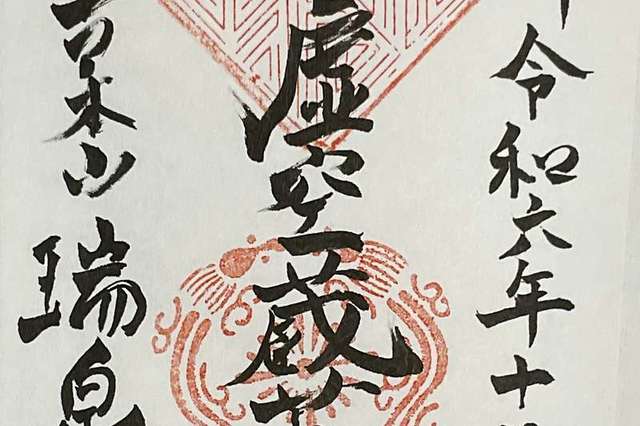 令和六年十
虚空蔵
木山 瑞泉